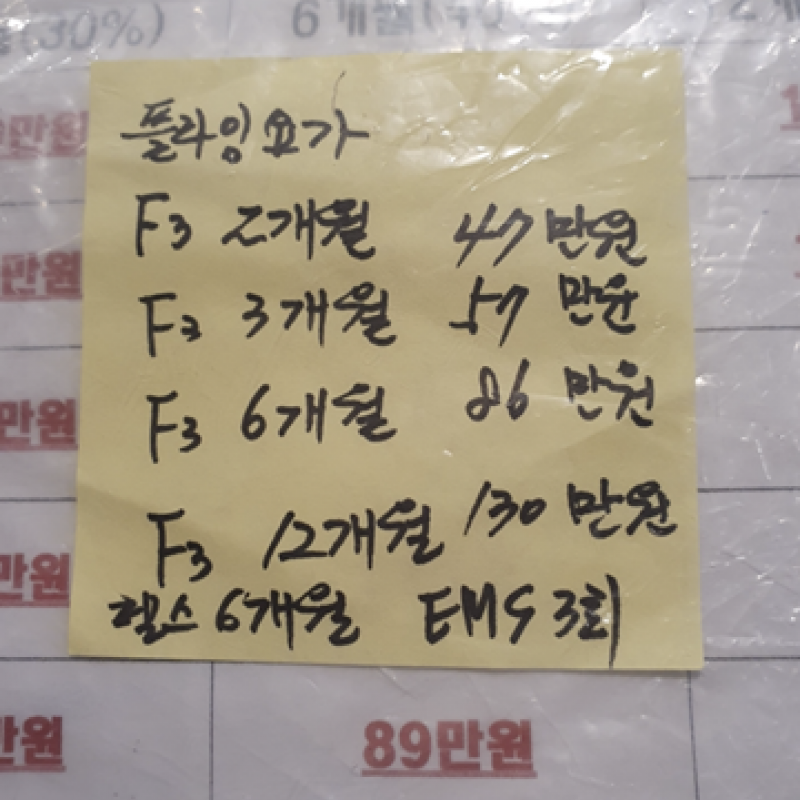 (30%)
6개월
만원
플라잉요가
F3 2개월 47만원
만원
F3 3개월 57만원
만원
F3 6개월 86만원
만원
F3 12개월 130만원
헬스 6개월 EMS 3회
만원
89만원